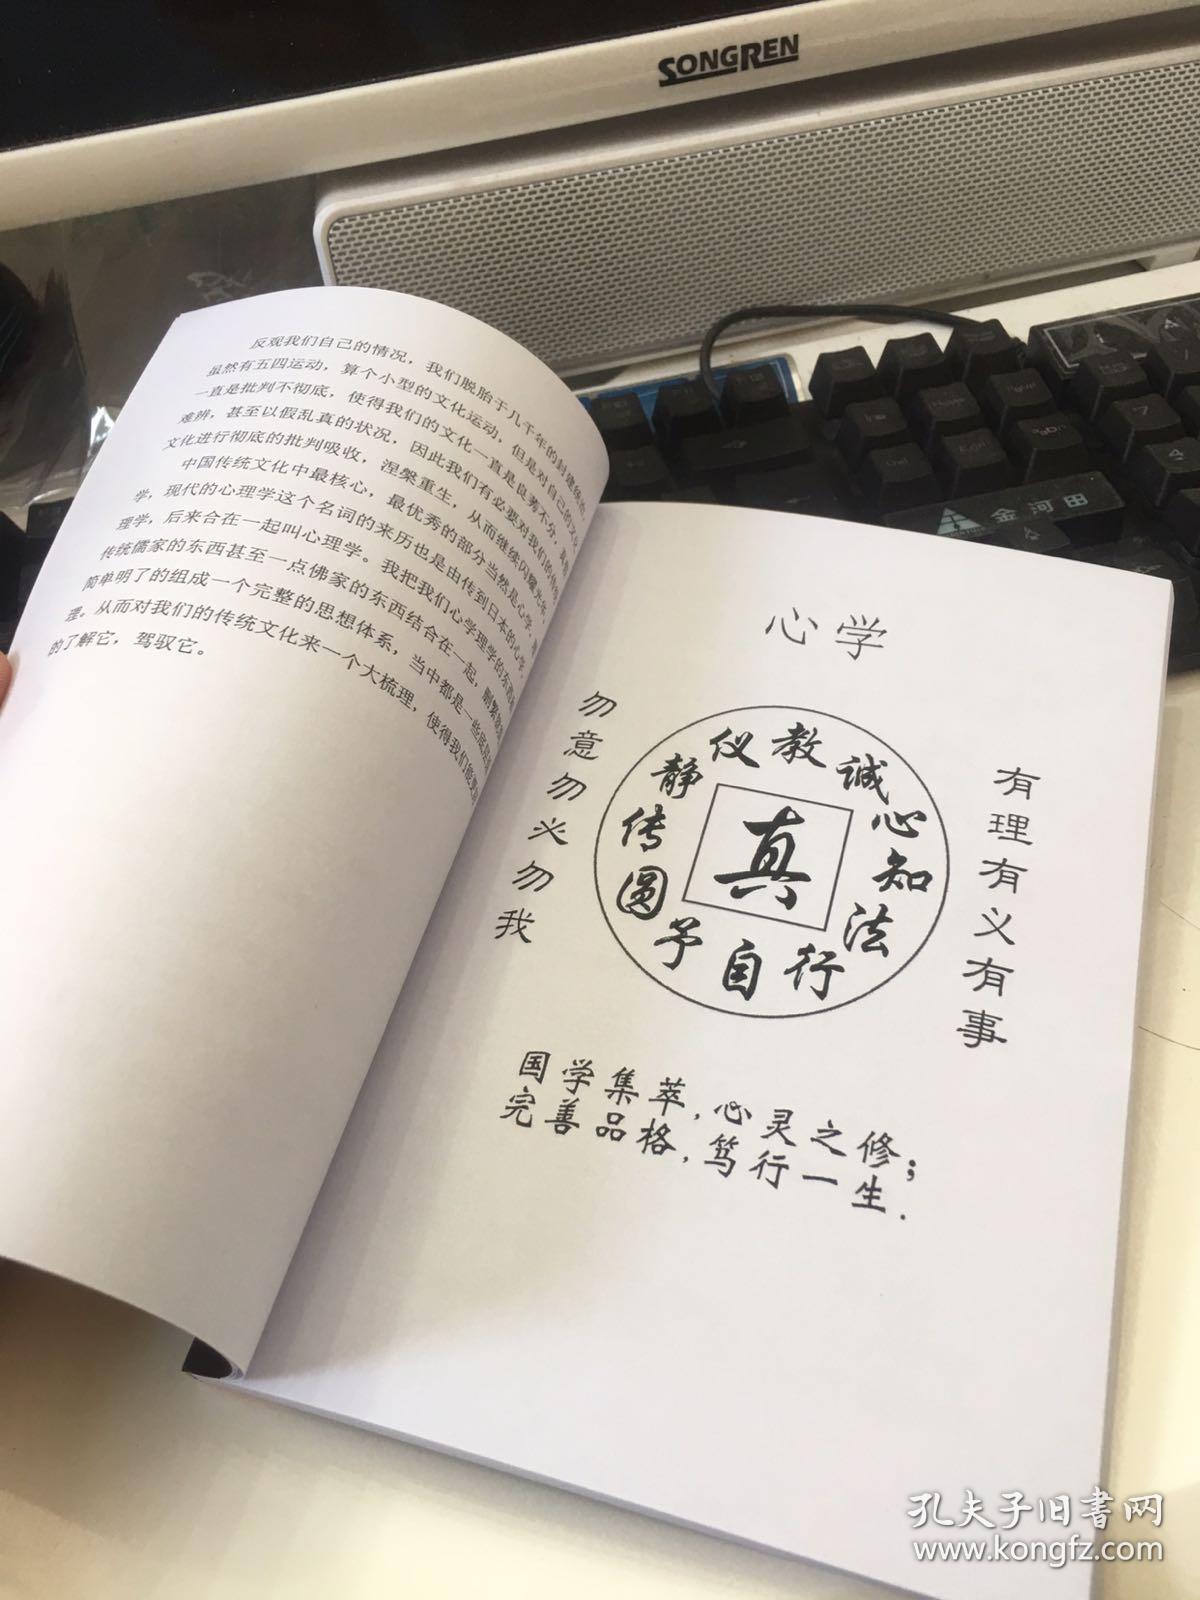 SONGREN
金河田
反观我们自己的情况，我们脱胎于几千年的封建
虽然有五四运动，算个小型的文化运动，但是对自己的
一直是批判不彻底，使得我们的文化一直是良莠不分，真假
难辨，甚至以假乱真的状况，因此我们有必要对我们的传统
文化进行彻底的批判吸收，涅槃重生，从而继续闪耀光
中国传统文化中最核心，最优秀的部分当然是心学，
学，现代的心理学这个名词的来历也是由传到日本的心学，
理学，后来合在一起叫心理学。我把我们心学理学的东西
传统儒家的东西甚至一点佛家的东西结合在一起，删繁
简单明了的组成一个完整的思想体系，当中都是一些
理。从而对我们的传统文化来一个大梳理，使得我们能
的了解它，驾驭它。
心学
勿意勿必勿我
仪教诚心知法行自予圆传静
真
有理有义有事
国学集萃，心灵之修；
完善品格，笃行一生.
孔夫子旧书网
www.kongfz.com